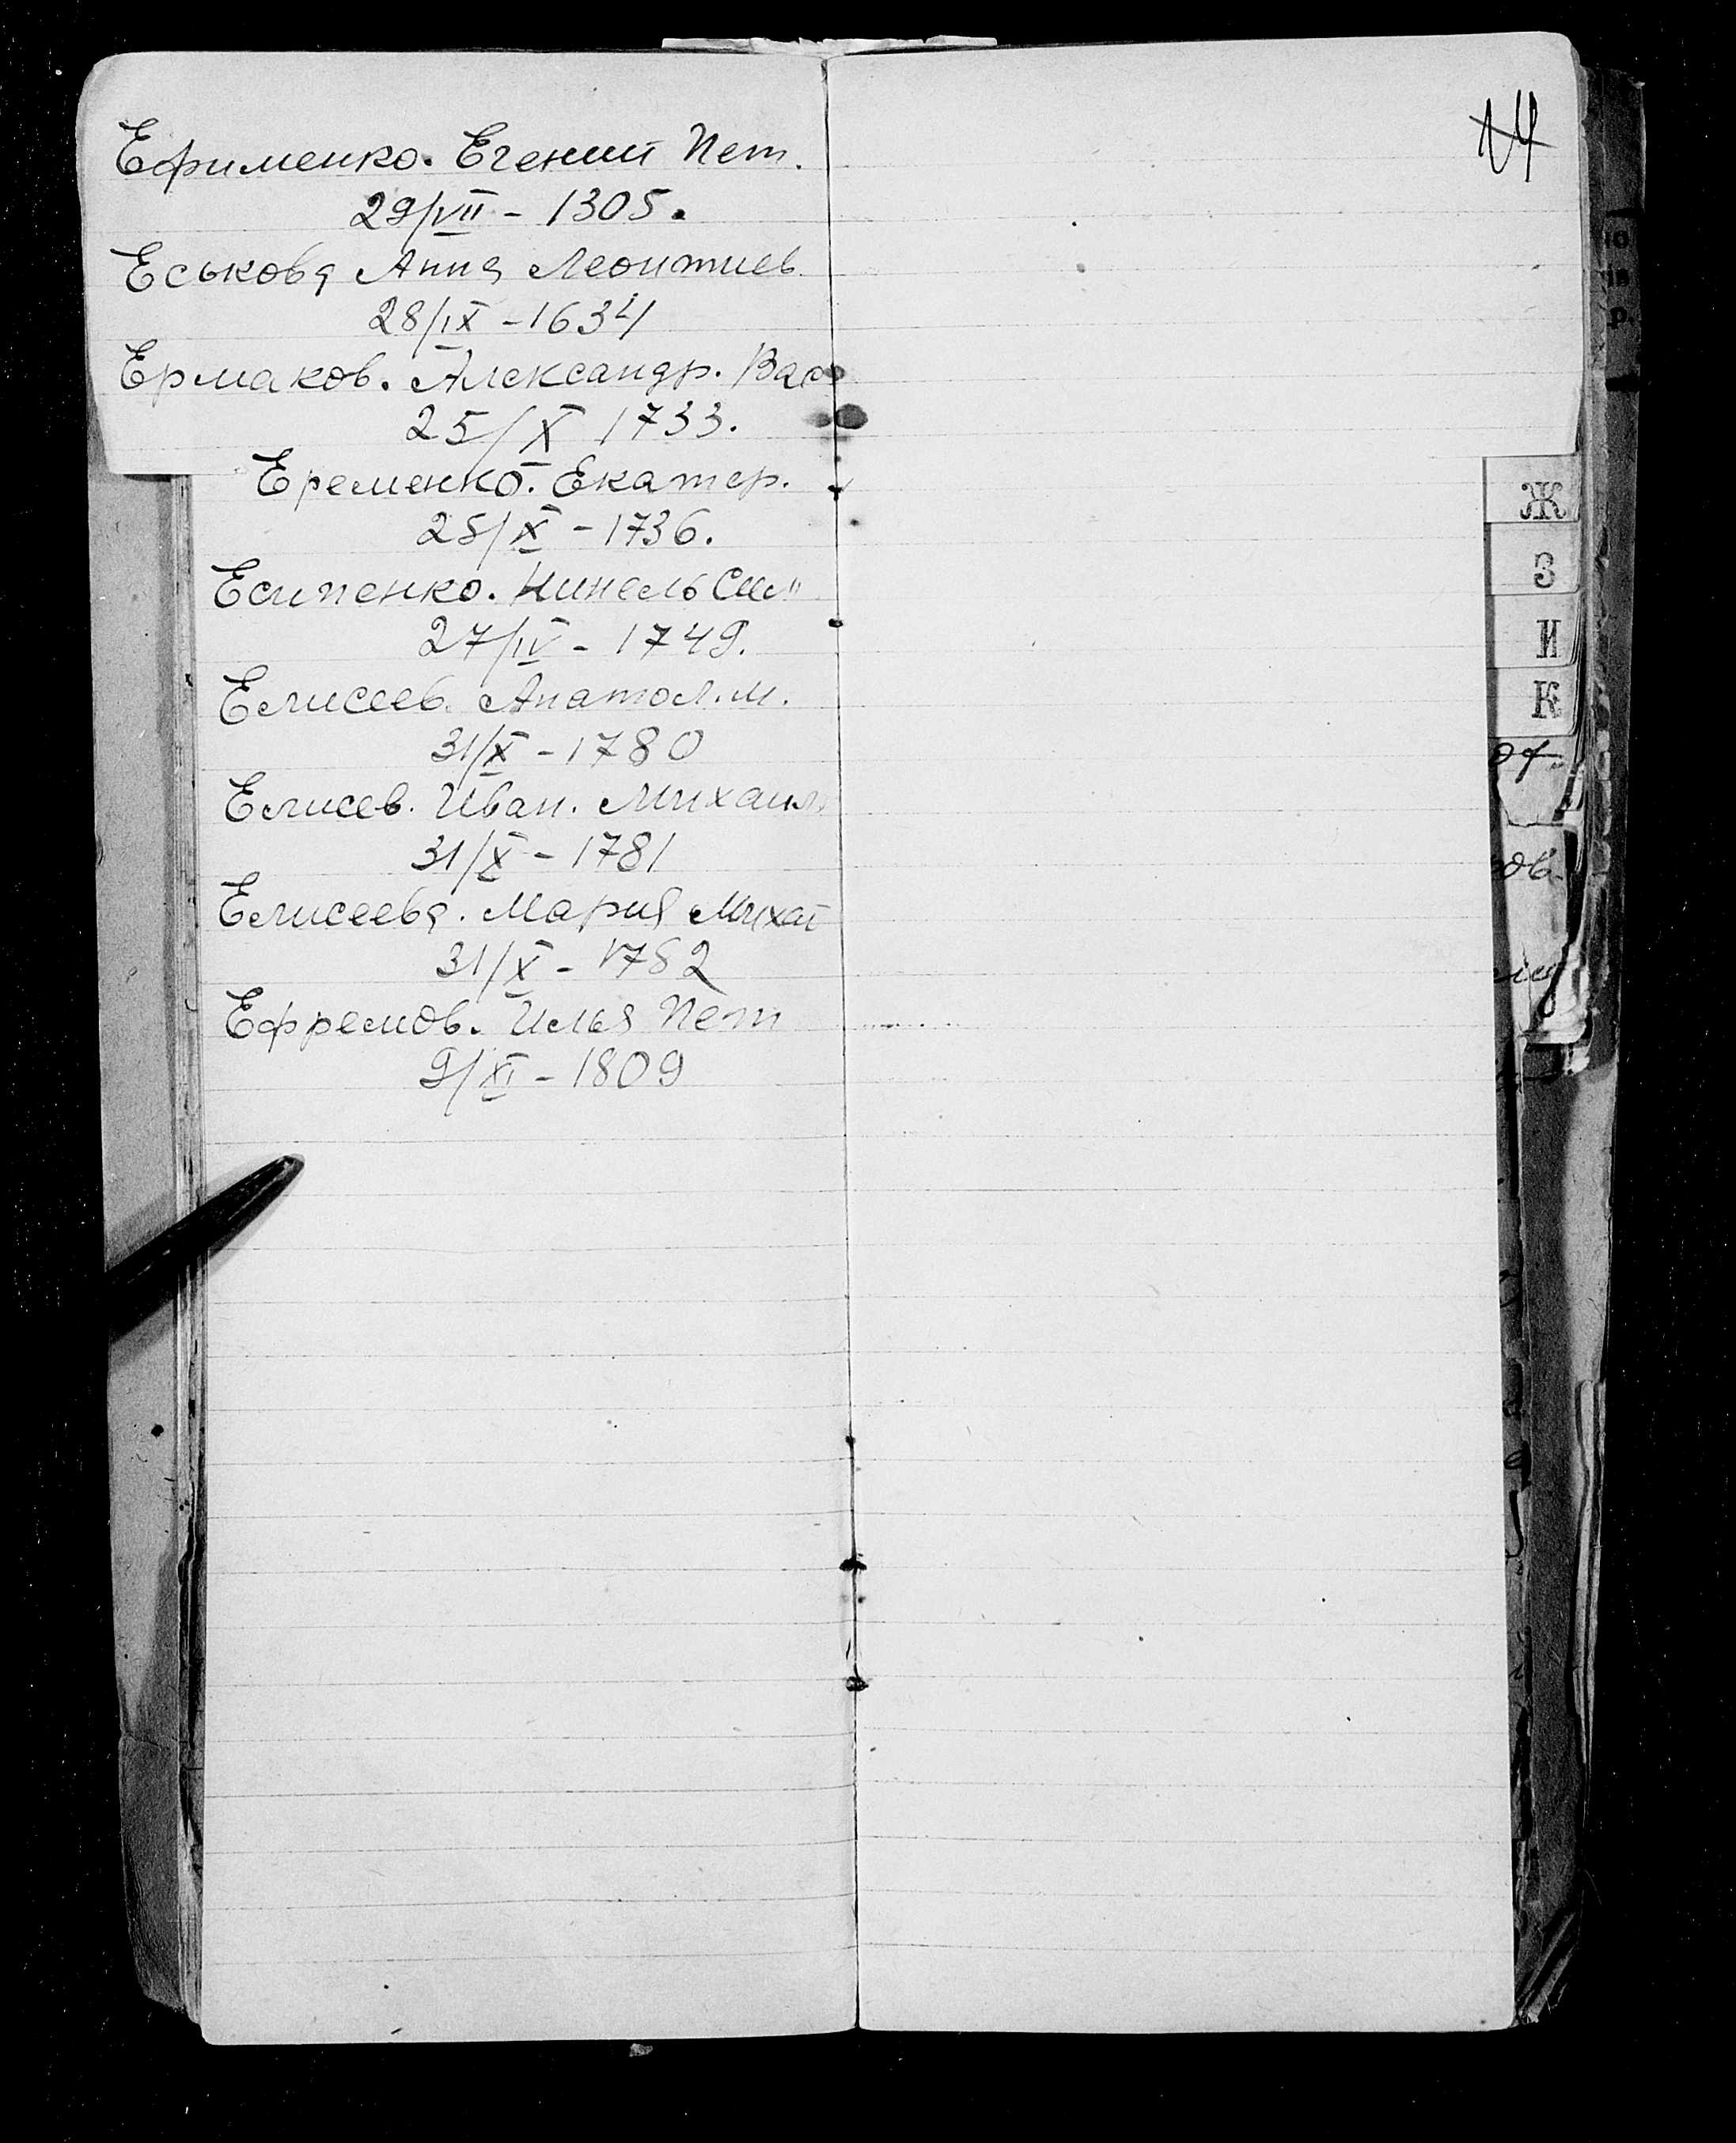 14
Ефименко. Егений Пет.
29/VII - 1305.
Еськова Анна Леонтиев
28/IX - 1634
Ермаков. Александр. Вас
25/X 1733.
Еременко. Екатер.
25/X - 1736.
Есипенко. Нинель
27/IV - 1749.
Елисеев. Анатол. М.
31/X - 1780
Елисев. Иван. Михаил.
31/X - 1781
Елисеева. Мария Михаи
31/X - 1782
Ефремов. Илья Пет
9/XI - 1809
Ж
З
И
К